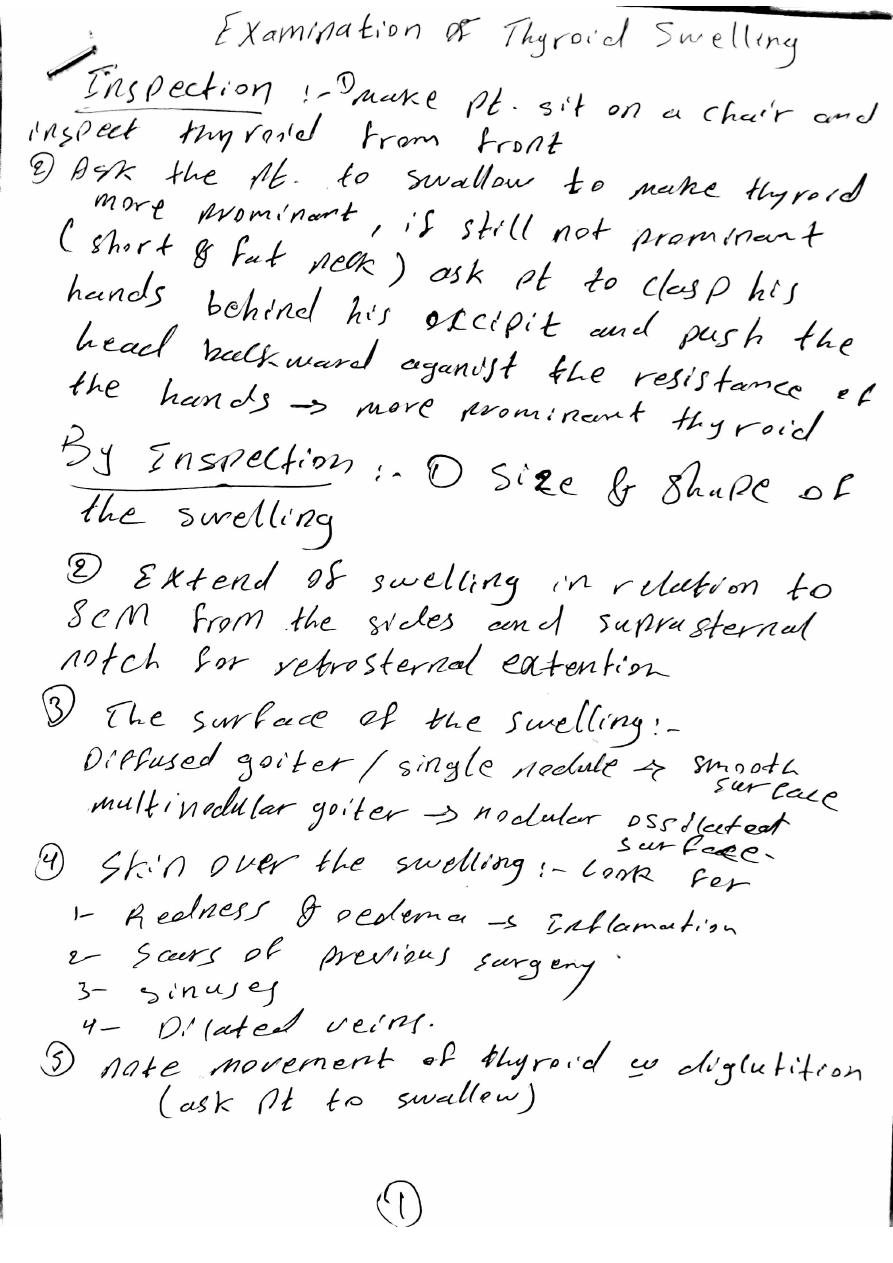 Examination of Thyroid Swelling
Inspection :- ① make pt. sit on a chair and
inspect thyroid from front
② Ask the pt. to swallow to make thyroid
more prominant, if still not prominant
( short & fat neck ) ask pt to clasp his
hands behind his occipit and push the
head backward aganist the resistance of
the hands → more prominant thyroid
By Inspection :- ① Size & Shape of
the swelling
② Extend of swelling in relation to
SCM from the sides and suprasternal
notch for retrosternal extention
③ The surface of the swelling :-
Diffused goiter / single nodule → smooth
surface
multinodular goiter → nodular
surface.
④ Skin over the swelling :- Look for
1- Redness & oedema → Inflamation
2- Scars of previous surgery.
3- sinuses
4- Dilated veins.
⑤ note movement of thyroid diglutition
(ask pt to swallow)
①